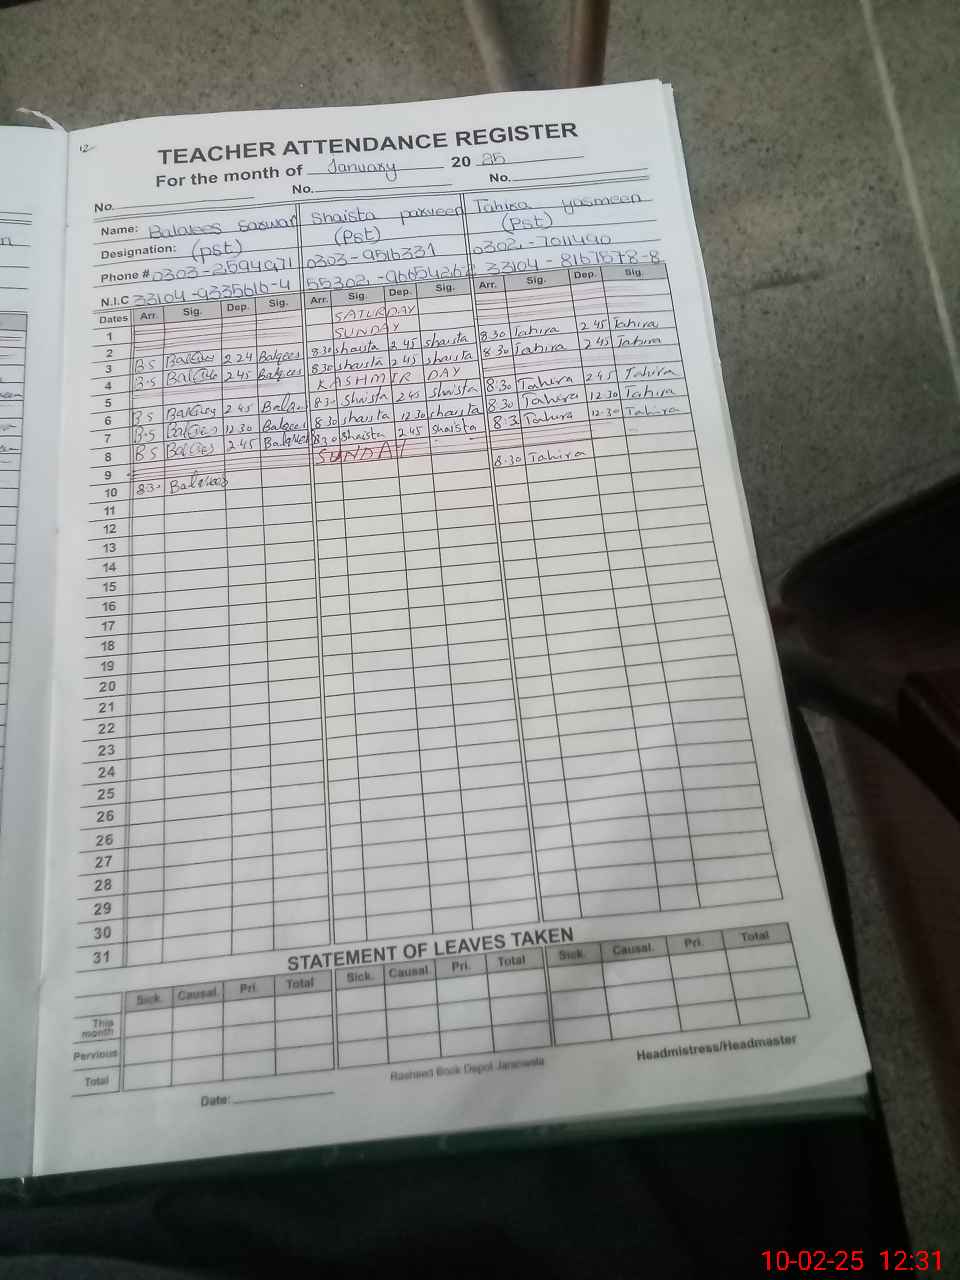 12
TEACHER ATTENDANCE REGISTER
For the month of January 20 25
No. No. No.
Name: Balqees Sarwar Shaista parveen Tahira yasmeen
Designation: (pst) (Pst) (Pst)
Phone # 0303-2594971 0303-9516331 0302-7011490
N.I.C 33104-9335616-4 33104-8167578-8
Dates Arr. Sig. Dep. Sig. Arr. Sig. Dep. Sig. Arr. Sig. Dep. Sig.
1 SATURDAY
2 SUNDAY
3 Balqees 2 24 Balqees 8 30 shaista 2 45 shaista 8 30 Tahira 2 45 Tahira
4 2 45 Balqees 8 30 shaista 2 45 shaista 8 30 Tahira 2 45 Tahira
5 KASHMIR DAY
6 2 45 8 30 Shaista 2 45 Shaista 8:30 Tahira 2 45 Tahira
7 12 30 Balqees 8 30 shaista 12 30 shaista 8 30 Tahira 12 30 Tahira
8 2 45 8 30 Shaista 2 45 Shaista 8:30 Tahira 12:30 Tahira
9 SUNDAY
10 8 30 Balqees 8.30 Tahira
11
12
13
14
15
16
17
18
19
20
21
22
23
24
25
26
26
27
28
29
30
31
STATEMENT OF LEAVES TAKEN
Sick. Causal. Pri. Total Sick. Causal. Pri. Total Sick. Causal. Pri. Total
This month
Pervious
Total
Date:
Rasheed Book Depot Jaranwala
Headmistress/Headmaster
10-02-25 12:31